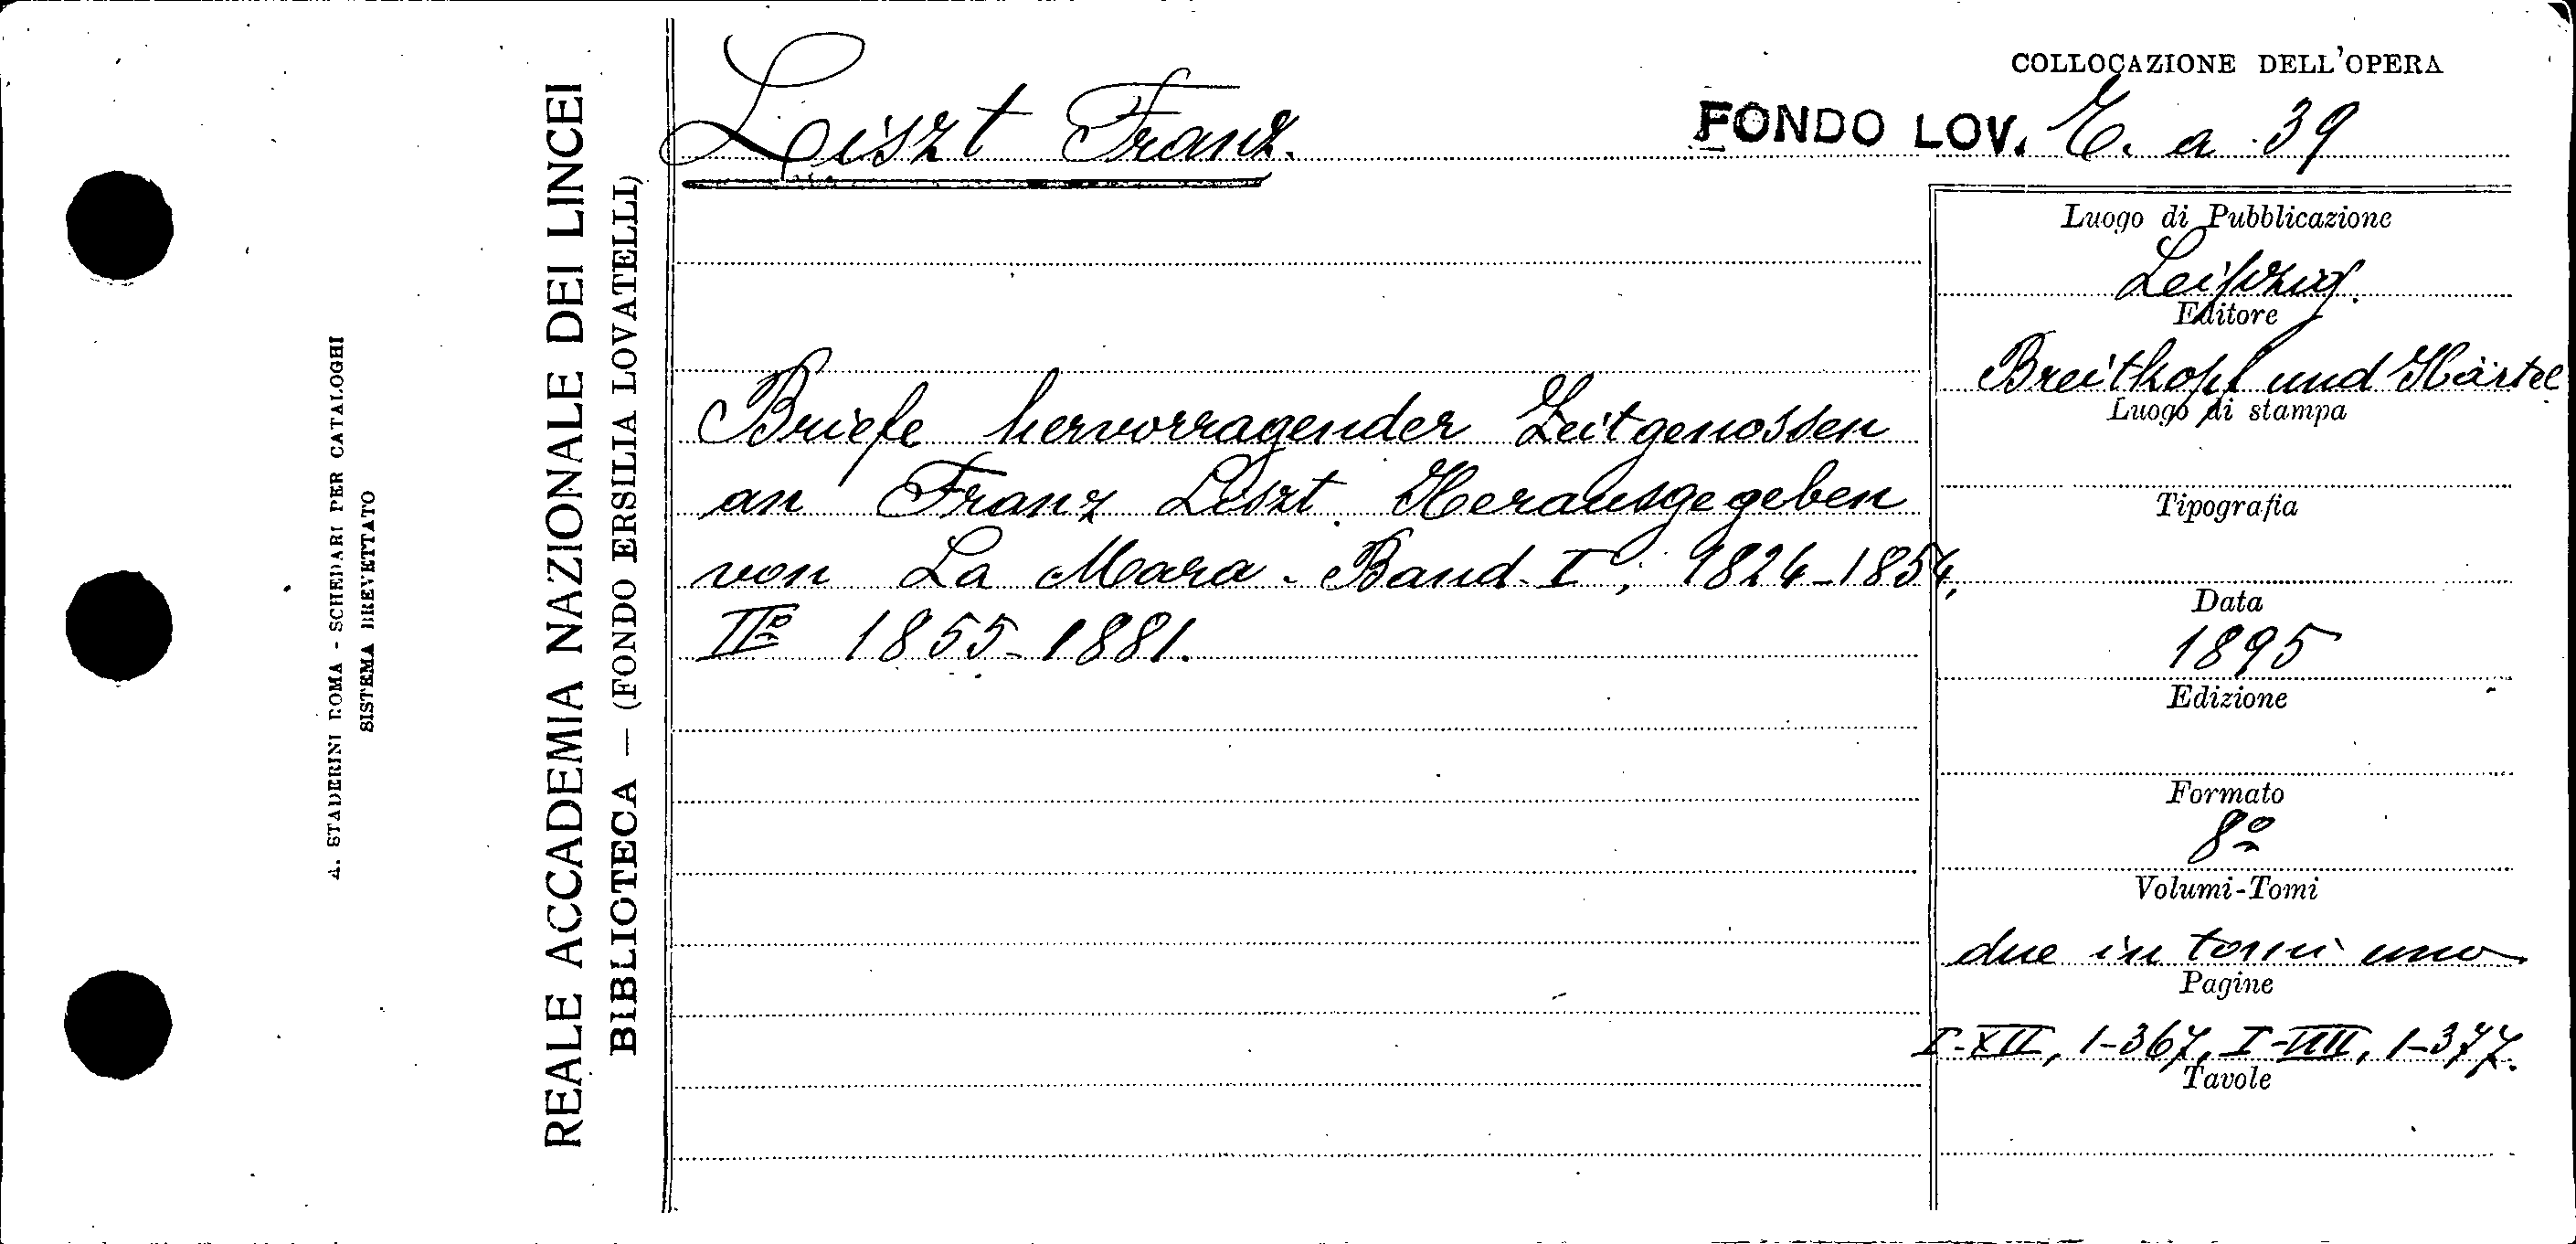 A. STADERINI ROMA - SCHEDARI PER CATALOGHI
SISTEMA BREVETTATO
REALE ACCADEMIA NAZIONALE DEI LINCEI
BIBLIOTECA — (FONDO ERSILIA LOVATELLI)
Liszt Franz.
COLLOCAZIONE DELL'OPERA
FONDO LOV. E. a 39
Briefe hervorragender Zeitgenossen
an Franz Liszt. Herausgegeben
von La Mara. Band I°, 1824-1854,
II° 1855-1881.
Luogo di Pubblicazione
Leipzig.
Editore
Breitkopf und Härtel
Luogo di stampa
Tipografia
Data
1895
Edizione
Formato
8°
Volumi-Tomi
due in tomi uno
Pagine
I-XII, 1-367, I-VIII, 1-377.
Tavole